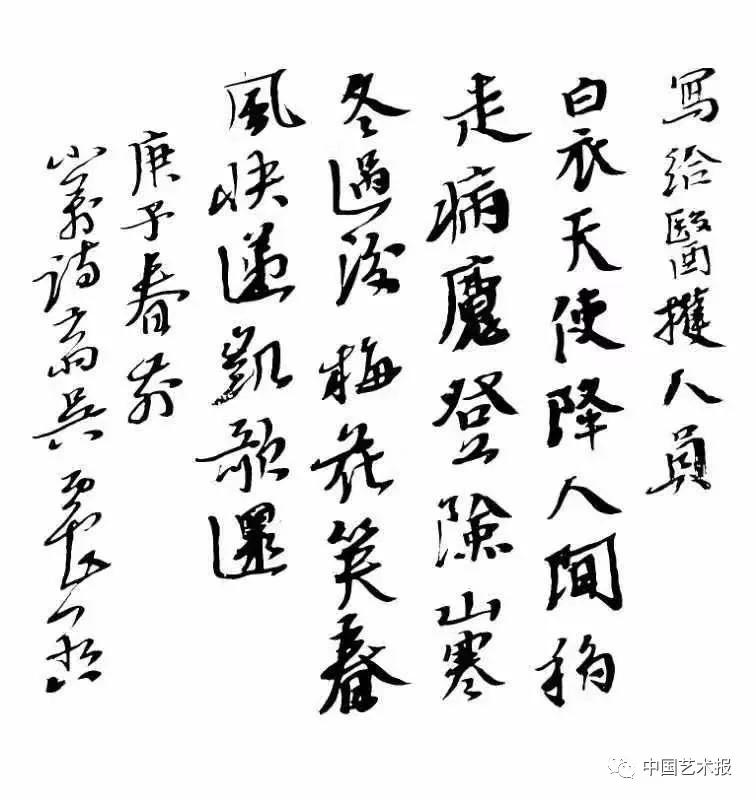 寫給醫護人員
白衣天使降人間移
走病魔登險山寒
冬過後梅花笑春
風快遞凱歌還
庚子春
小詩斋吴震启
中国艺术报